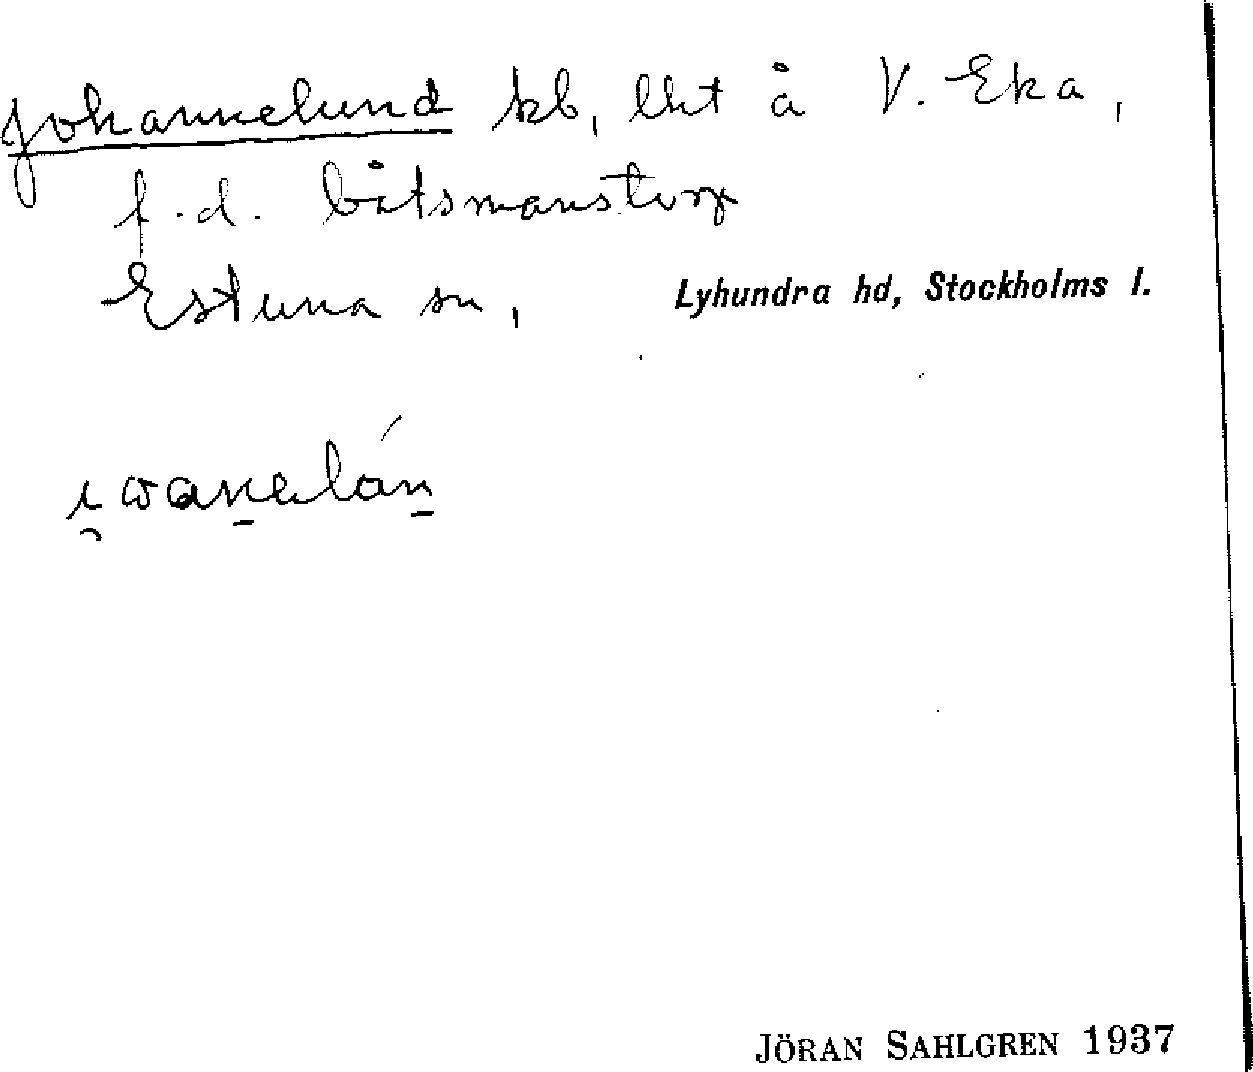 Johannelund kb, lht å V. Eka,
f.d. båtsmanstorp
Estuna sn, Lyhundra hd, Stockholms l.
JÖRAN SAHLGREN 1937